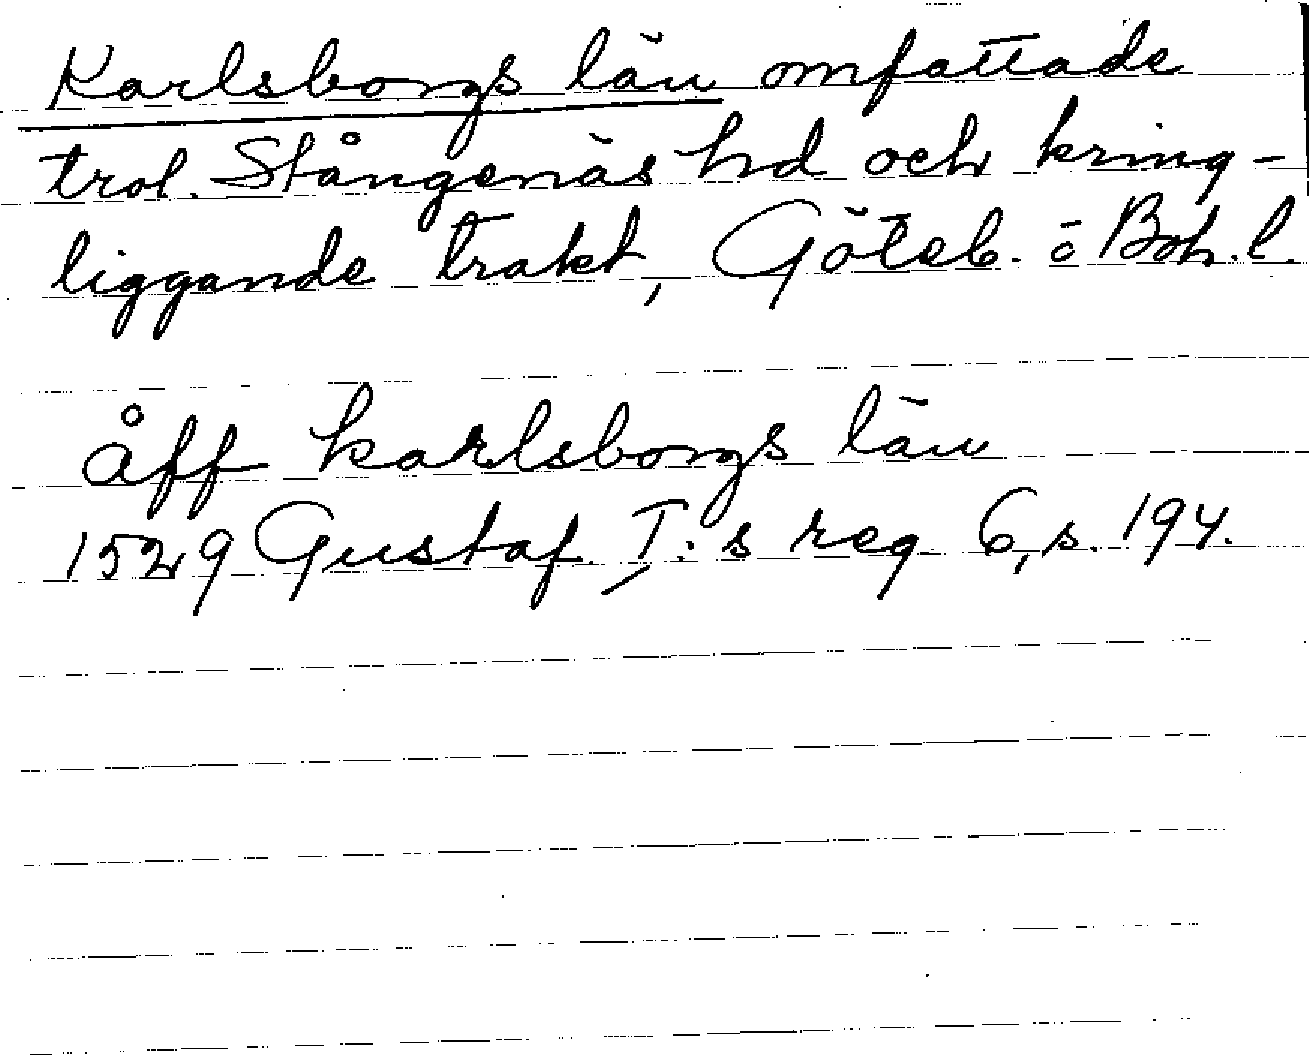 Karlsborgs län omfattade
trol. Stångenäs hd och kring-
liggande trakt, Göteb. o Boh. l.
åff karlsborgs län
1529 Gustaf I:s reg 6, s. 194.